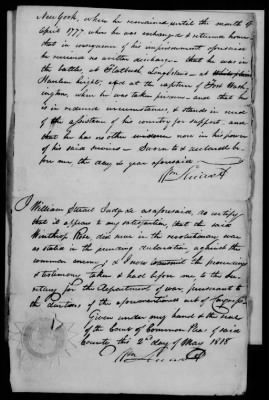 New York, where he remained until the month of
April 1777 when he was exchanged & returned home
that in consequence of his imprisonment aforesaid
he received no written discharge - that he was in
the battles at Flatbush Long Island - at
Harlem heights, and at the capture of Fort Wash-
ington, when he was taken prisoner and that he
is in reduced circumstances, & stands in need
of the assistance of his country for support - and
that he has no other evidence now in his power
of his said services - Sworn to & declared be-
fore me the day & year aforesaid
Wm
I William Judge as aforesaid, do certify
that it appears to my satisfaction, that the said
Winthrop did serve in the revolutionary war
as stated in the preceding declaration, against the
common enemy, & I now transmit the proceedings
& testimony taken & had before me to the Sec-
retary for the department of war, pursuant to
the directions of the aforementioned act of Congress
Given under my hand & the seal
of the Court of Common Pleas of said
County this 2nd day of May 1818
Wm